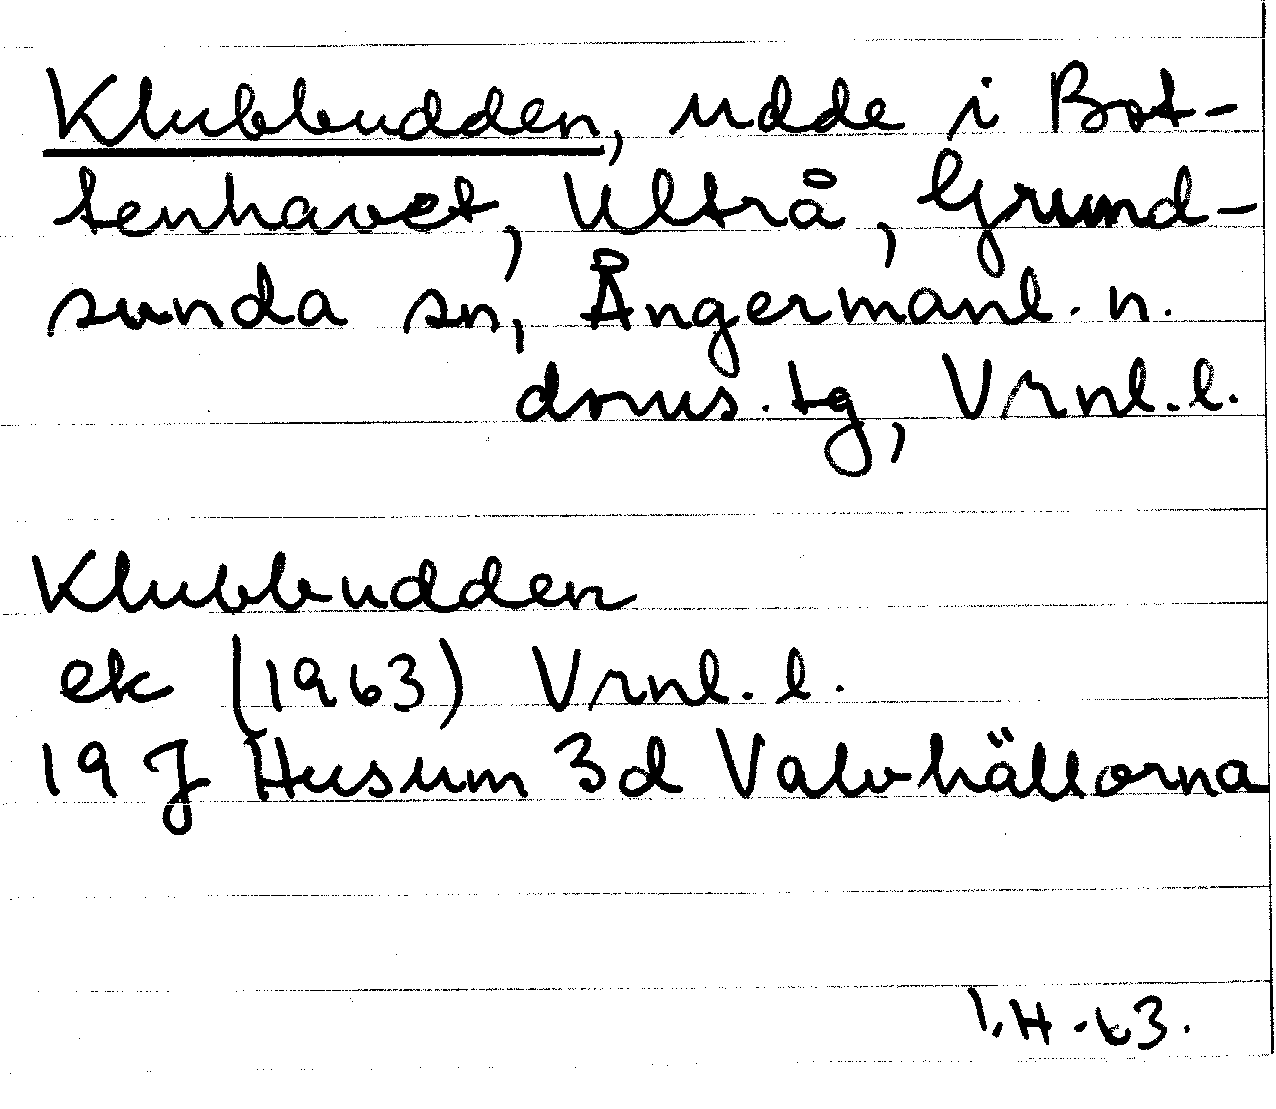 Klubbudden, udde i Bot-
tenhavet, Ultrå, Grund-
sunda sn, Ångermanl. n.
doms. tg, Vrnl. l.
Klubbudden
ek (1963) Vrnl. l.
19 J Husum 3d Valvhällorna
I.H -63.